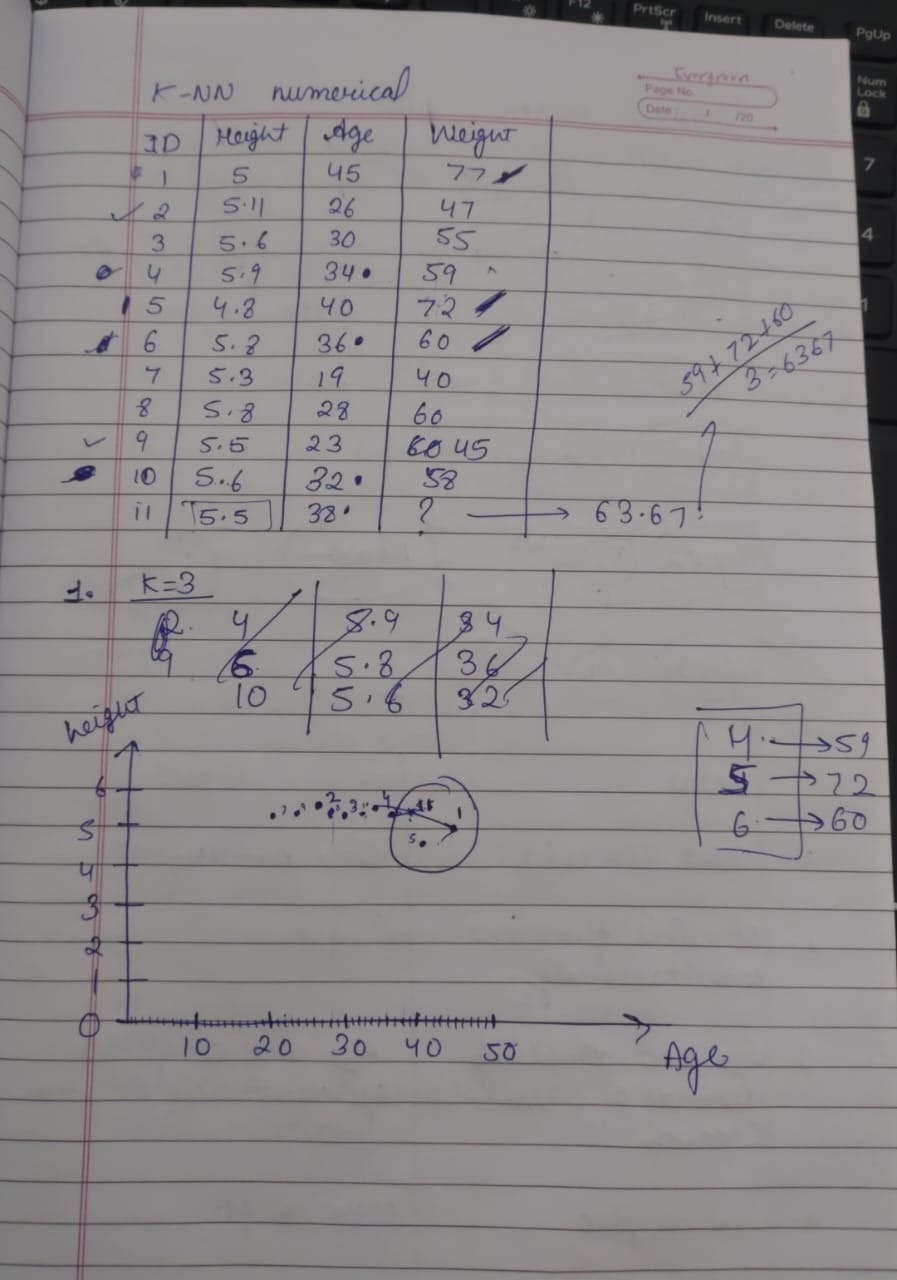 F12 PrtScr Insert Delete PgUp
Num Lock
7
4
1
Evergreen
Page No.
Date : / /20
K-NN numerical
ID Height Age Weight
1 5 45 77
2 5.11 26 47
3 5.6 30 55
4 5.9 34 59
5 4.8 40 72
6 5.8 36 60
7 5.3 19 40
8 5.8 28 60
9 5.5 23 45
10 5.6 32 58
11 5.5 38 ? → 63.67
59+72+60
3 = 6367
1. K=3
2. 4 5.9 34
9 6 5.8 36
10 5.6 32
4 → 59
5 → 72
6 → 60
height
6
5
4
3
2
1
0
10 20 30 40 50
Age